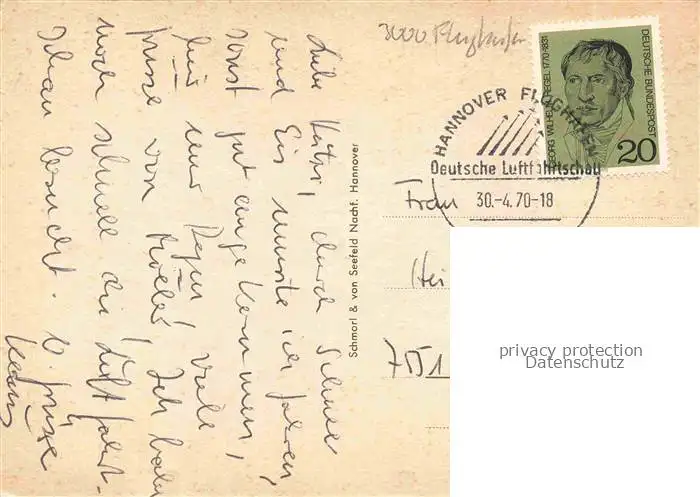 3000 Flughafen
DEUTSCHE BUNDESPOST
GEORG WILHELM FR. HEGEL 1770-1831
20
HANNOVER FLUGHAFEN
Deutsche Luftfahrtschau
30.-4.70-18
Liebe Käthi, durch Schnee
und Eis musste ich fahren,
sonst gut angekommen,
hier nur Regen! Viele
Grüsse von Ich habe
noch schnell die Luftfahrt-
schau besucht. V. Grüsse
Schmorl & von Seefeld Nachf. Hannover
Frau
Hei
7
privacy protection
Datenschutz